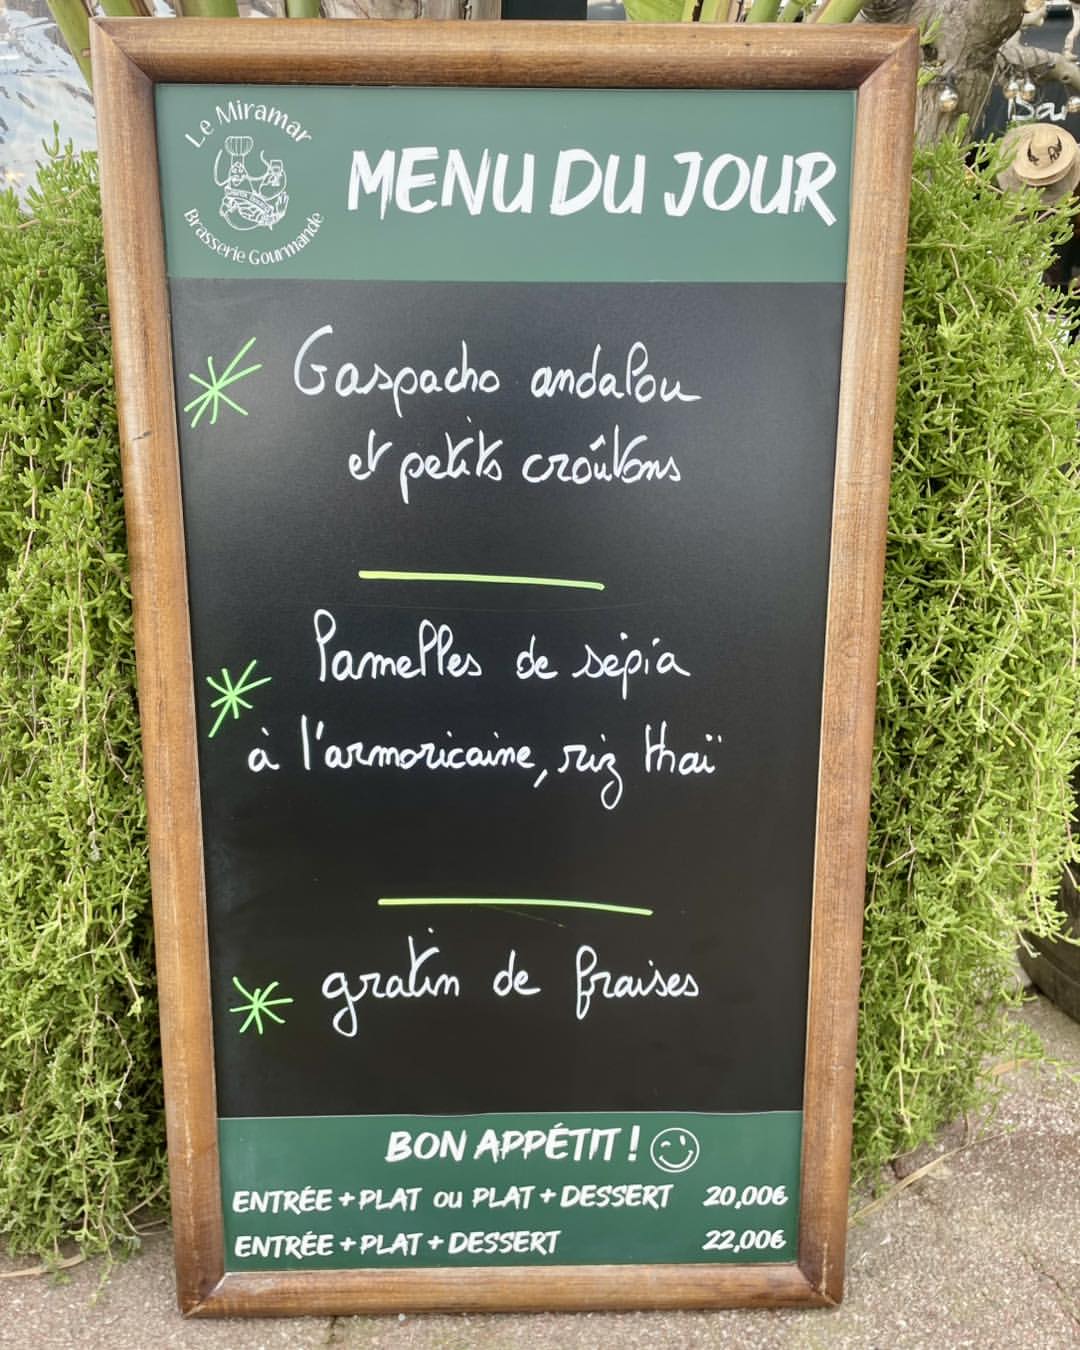 Le Miramar
Brasserie Gourmande
MENU DU JOUR
Gaspacho andalou
et petits croûtons
Lamelles de sépia
à l'armoricaine, riz thaï
gratin de fraises
BON APPÉTIT !
ENTRÉE + PLAT OU PLAT + DESSERT 20,00€
ENTRÉE + PLAT + DESSERT 22,00€
Bar